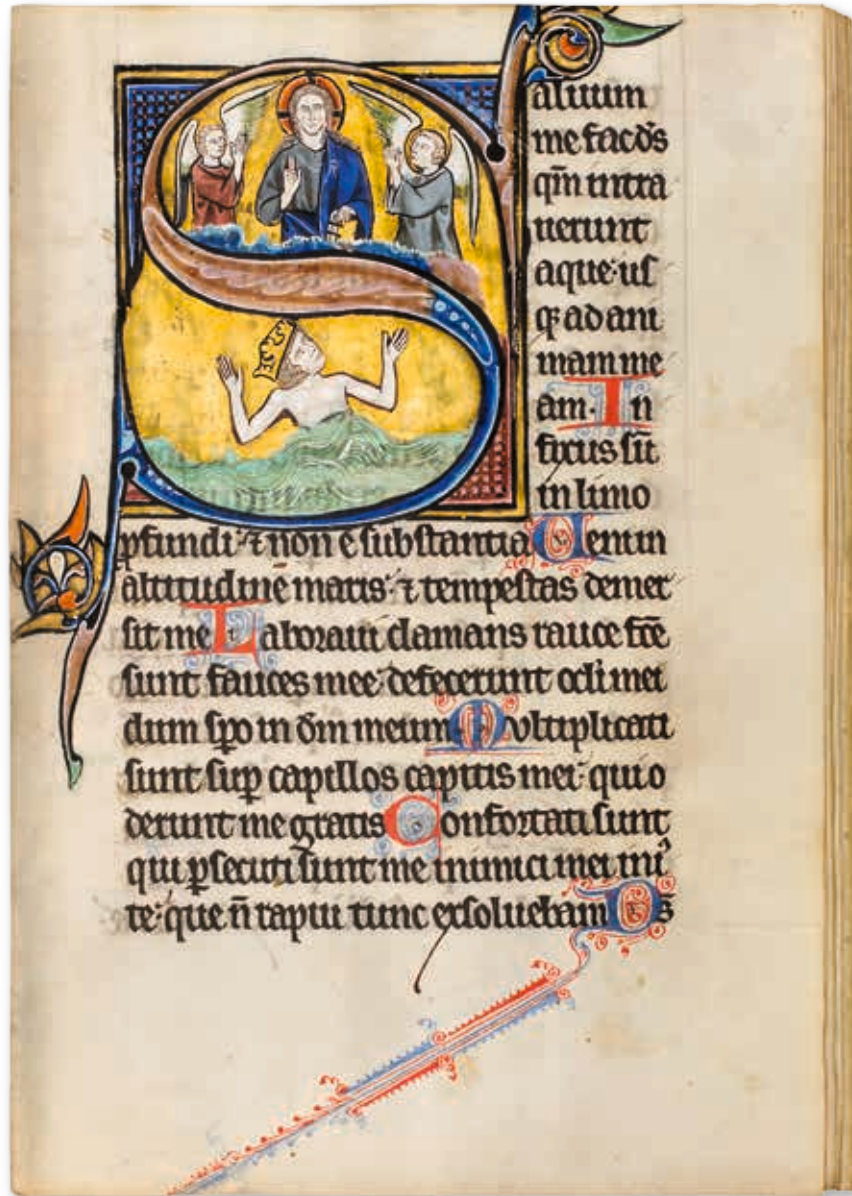 Saluum
me fac ds̄
qm̄ intra
uerunt
aque us
qꝫ ad ani
mam me
am. In
fixus sū
in limo
ꝓfundi: ⁊ non ē substantia Ueni in
altitudinē maris: ⁊ tempestas demer
sit me Laboraui clamans rauce fc̄e
sunt fauces mee: defecerunt ocl̄i mei
dum sꝑo in dm̄ meum. Multiplicati
sunt suꝑ capillos capitis mei: qui o
derunt me gratis Confortati sunt
qui ꝑsecuti sunt me inimici mei iniͥ
te: que n̄ rapui tunc exsoluebam Ds̄